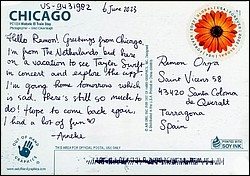 US-9431982
6 June 2023
CHICAGO
Hello Ramon! Greetings from Chicago.
I'm from The Netherlands but here
on a vacation to see Taylor Swift
in concert and explore the city.
I'm going home tomorrow which
is sad, there's still so much to
do! Hope to come back again,
I had a lot of fun ♡
- Anneke
Ramon Orga
Saint Vicenç 58
43420 Santa Coloma
de Queralt
Tarragona
Spain
OUT OF THE BLUE
GRAPHICS
THIS AREA FOR OFFICIAL POSTAL USE ONLY
SOY INK